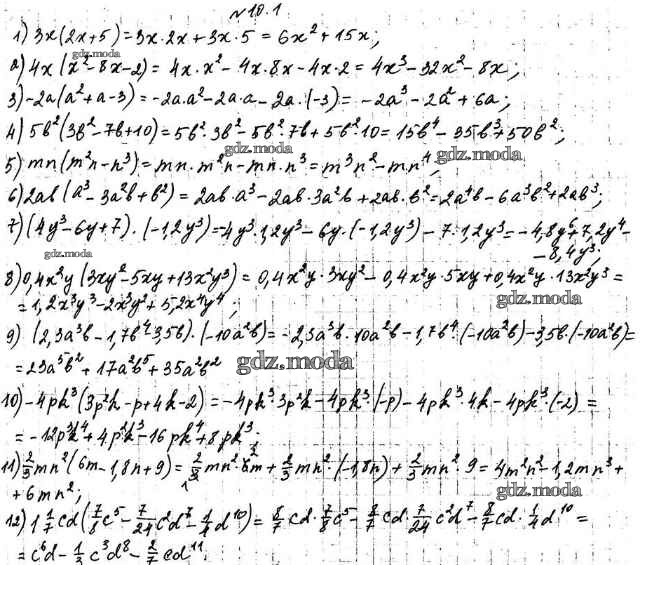 №10.1
1) 3x(2x+5)=3x·2x+3x·5=6x²+15x;
gdz.moda
2) 4x(x²-8x-2)=4x·x²-4x·8x-4x·2=4x³-32x²-8x;
3) -2a(a²+a-3)=-2a·a²-2a·a-2a·(-3)=-2a³-2a²+6a;
4) 5b²(3b²-7b+10)=5b²·3b²-5b²·7b+5b²·10=15b⁴-35b³+50b²;
gdz.moda gdz.moda
5) mn(m²n-n³)=mn·m²n-mn·n³=m³n²-mn⁴;
6) 2ab(a³-3a²b+b²)=2ab·a³-2ab·3a²b+2ab·b²=2a⁴b-6a³b²+2ab³;
7) (4y³-6y+7)·(-1,2y³)=-4y³·1,2y³-6y·(-1,2y³)-7·1,2y³=-4,8y⁶+7,2y⁴-
-8,4y³;
gdz.moda
8) 0,4x²y(3xy²-5xy+13x²y³)=0,4x²y·3xy²-0,4x²y·5xy+0,4x²y·13x²y³=
gdz.moda
=1,2x³y³-2x³y²+5,2x⁴y⁴;
9) (2,3a³b-1,7b⁴-3,5b)·(-10a²b)=-2,3a³b·10a²b-1,7b⁴·(-10a²b)-3,5b·(-10a²b)=
=23a⁵b²+17a²b⁵+35a²b²
gdz.moda
10) -4pk³(3p²k-p+4k-2)=-4pk³·3p²k-4pk³·(-p)-4pk³·4k-4pk³·(-2)=
=-12p³k⁴+4p²k³-16pk⁴+8pk³.
11) 2/3mn²(6m-1,8n+9)=2/3mn²·6m+2/3mn²·(-1,8n)+2/3mn²·9=4m²n²-1,2mn³+
+6mn²;
gdz.moda
12) 1 1/7cd(7/8c⁵-7/24c²d⁷-1/4d¹⁰)=8/7cd·7/8c⁵-8/7cd·7/24c²d⁷-8/7cd·1/4d¹⁰=
=c⁶d-1/3c³d⁸-2/7cd¹¹.